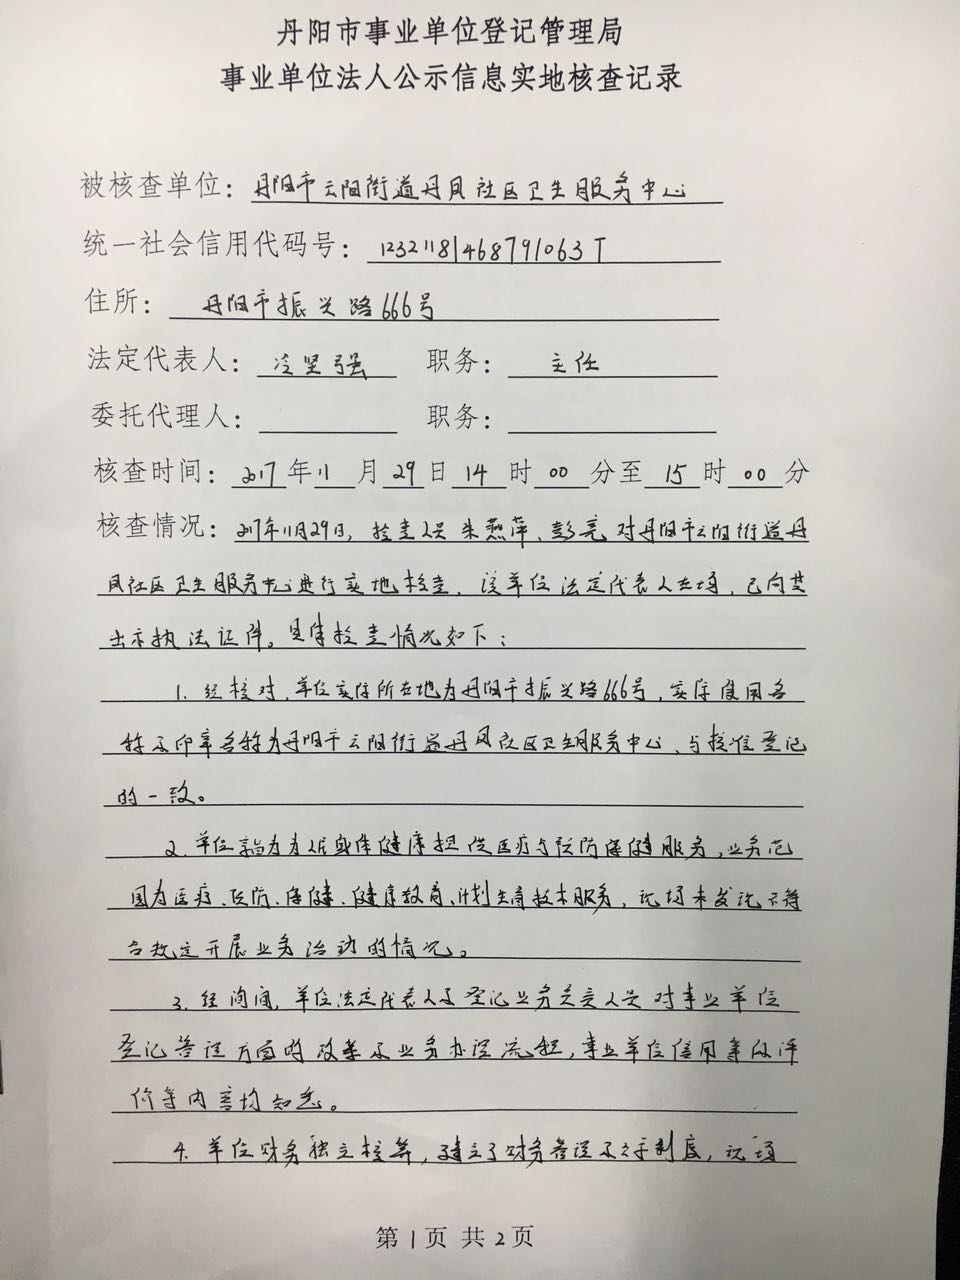 丹阳市事业单位登记管理局
事业单位法人公示信息实地核查记录
被核查单位：丹阳市云阳街道丹凤社区卫生服务中心
统一社会信用代码号：12321181468791063T
住所：丹阳市振兴路666号
法定代表人：冷坚强 职务：主任
委托代理人： 职务：
核查时间：2017年11月29日14时00分至15时00分
核查情况：2017年11月29日，检查人员朱燕萍、彭亮对丹阳市云阳街道丹
凤社区卫生服务中心进行实地核查，该单位法定代表人在场，已向其
出示执法证件。具体检查情况如下：
1. 经核对，单位实际所在地为丹阳市振兴路666号，实际使用名
称及印章名称为丹阳市云阳街道丹凤社区卫生服务中心，与核准登记
的一致。
2. 单位宗旨为为人民身体健康提供医疗与预防保健服务，业务范
围为医疗、预防、保健、健康教育、计划生育技术服务，现场未发现不符
合规定开展业务活动的情况。
3. 经询问，单位法定代表人及登记业务负责人员对事业单位
登记管理方面的政策及业务办理流程，事业单位信用等级评
价等内容均知悉。
4. 单位财务独立核算，建立了财务管理及 制度，现场
第1页 共2页